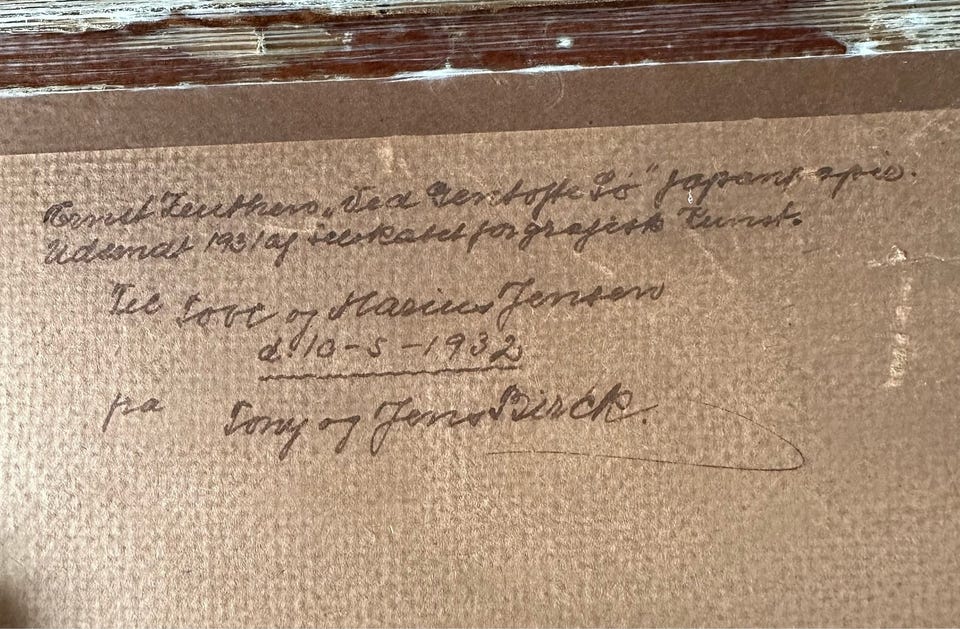 Ernst Zeuthen, "Ved Gentofte Sø" japansk
Udsendt 1931 af selskabet for grafisk Kunst.
Til Tove og Marius Jensen
d. 10-5-1932
fra Tony og Jens Birck.